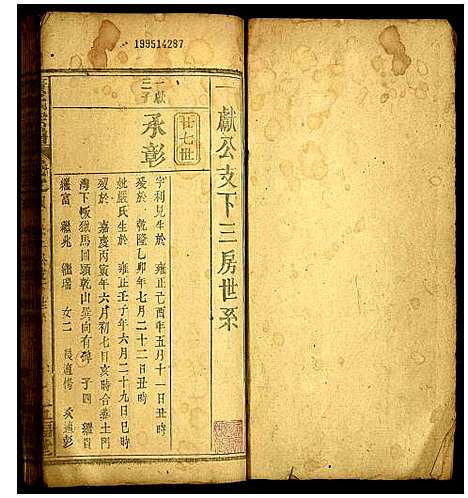 199514287
一獻公支下三房世系
廿七世
一獻
三子
承彰
字利見生於 雍正己酉年五月十一日丑時
歿於 乾隆乙卯年七月二十二日丑時
妣嚴氏生於 雍正壬子年六月二十九日巳時
歿於 嘉慶丙寅年六月初七日亥時合葬土門
灣下坂獵馬回頭乾山巽向有碑 子四 繼貴
繼富 繼兆 繼瑞 女二 長適楊 次適彭